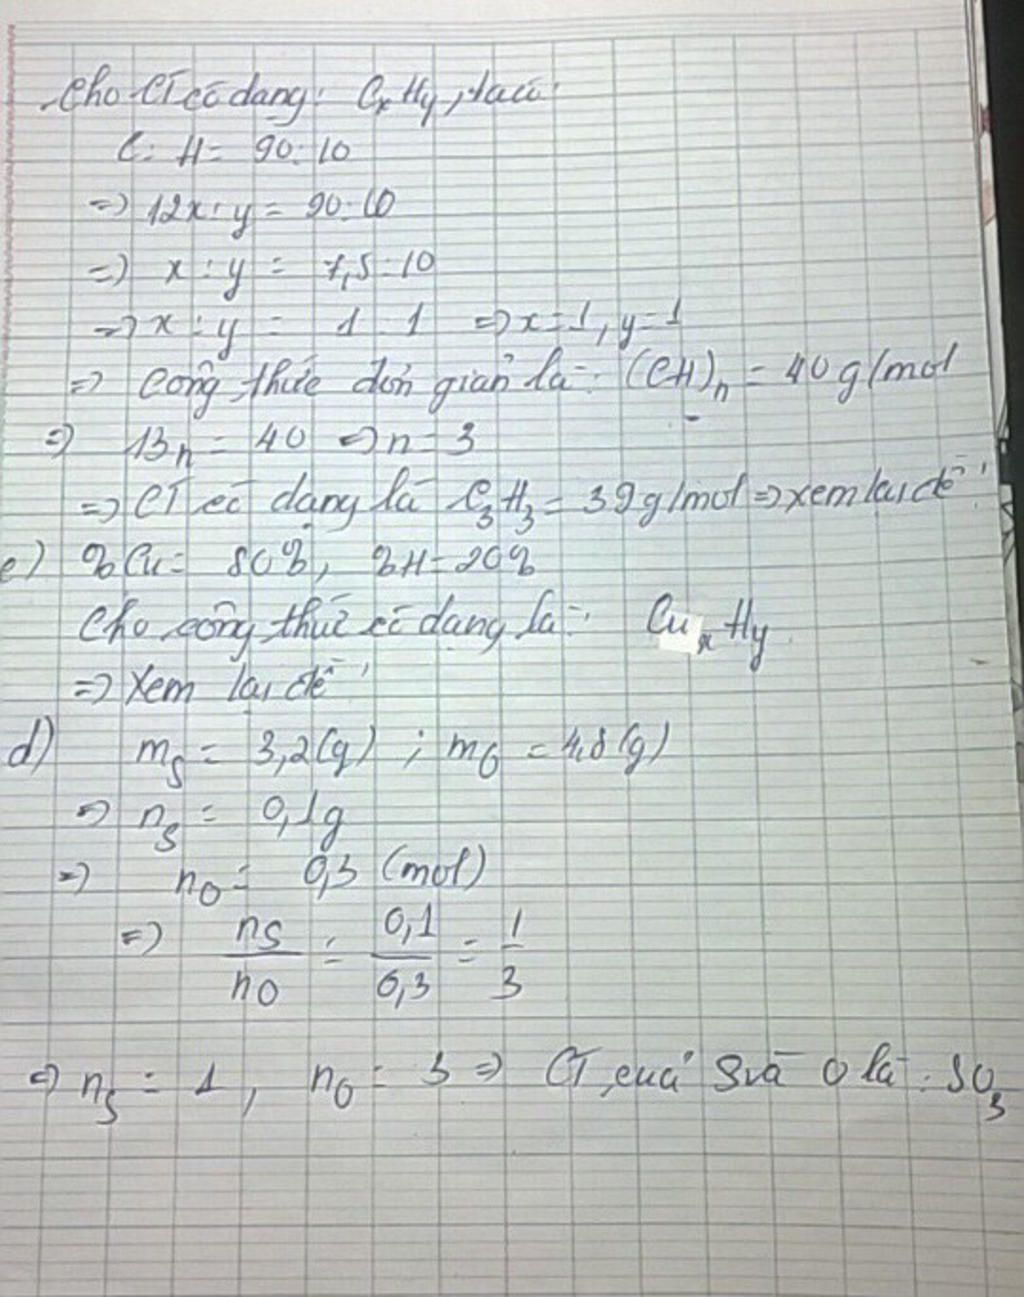 Cho CT có dạng: CxHy, ta có:
C : H = 90 : 10
=> 12x : y = 90 : 10
=> x : y = 7,5 : 10
=> x : y = 1 : 1 => x = 1, y = 1
=> Công thức đơn giản là: (CH)n = 40 g/mol
=> 13n = 40 => n = 3
=> CT có dạng là C3H3 = 39 g/mol => xem lại đề!
c) % Cu = 80%, %H = 20%
Cho công thức có dạng là: CuxHy
=> Xem lại đề!
d) mS = 3,2(g) ; mO = 4,8(g)
=> nS = 0,1g
=> nO = 0,3 (mol)
=> nS/nO = 0,1/0,3 = 1/3
=> nS = 1, nO = 3 => CT của S và O là: SO3